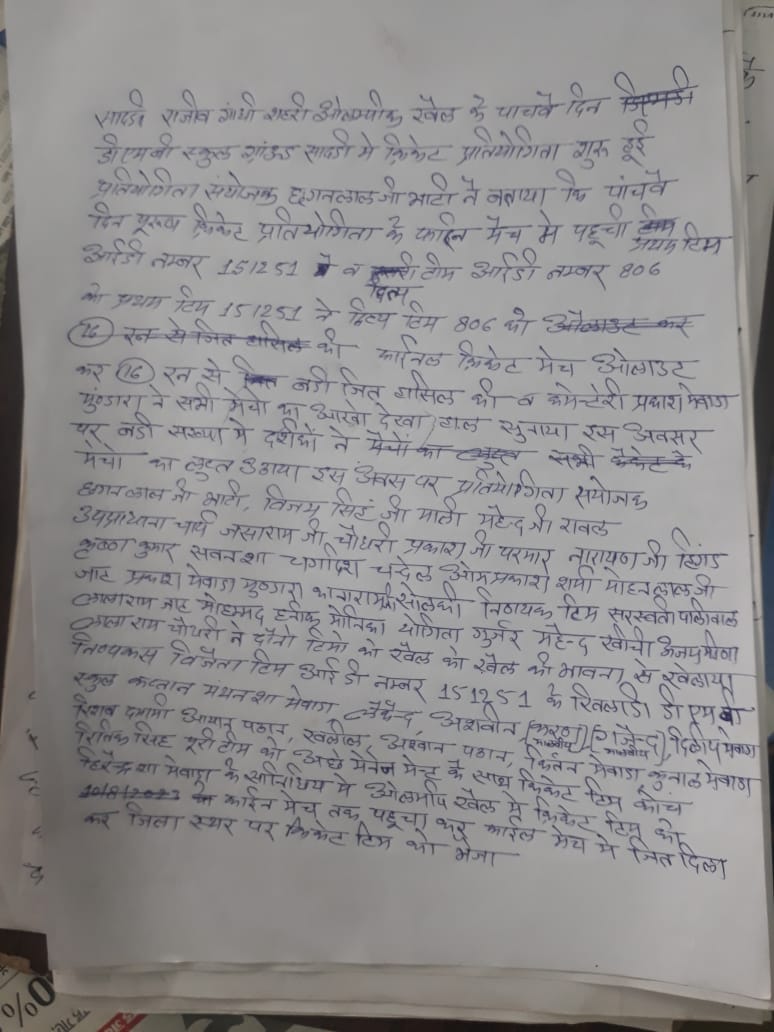 सादडी राजीव गांधी शहरी ओलम्पीक खेल के पाचवे दिन
डीएमबी स्कुल ग्रांऊड सादडी मे क्रिकेट प्रतियोगिता शुरू हुई
प्रतियोगिता संयोजक छगनलाल जी भाटी ने बताया कि पांचवे
दिन पुरूष क्रिकेट प्रतियोगिता के फाईनल मैच मे पहूची प्रथम टिम
आईडी नम्बर 151251 व टीम आईडी नम्बर 806
को प्रथम टिम 151251 ने टिम 806 को ओलाउट कर
(16) रन से जित हासिल की क्रिकेट मेच ओलाउट
कर (16) रन से बडी जित हासिल की व कमेन्टेरी प्रकाश मेवाडा
मुण्डारा ने सभी मेचो का आखा देखा हाल सुनाया इस अवसर
पर बडी सख्या मे दर्शको ने मैचों का लुफ्त सभी के
मेचो का लुफ्त उठाया इस अवस पर प्रतियोगिता सयोजक
छगनलाल जी भाटी, विजय सिहं जी माली महेन्द्र जी रावल
उपप्राधाना चार्य जसाराम जी चौधरी प्रकाश जी परमार नारायण जी
कुमार सवनशा चन्देल ओम प्रकाश शर्मा मोहनलाल जी
जाट प्रकाश मेवाडा मुण्डारा कानाराम सोलंकी निर्णायक टिम सरस्वती पालीवाल
जाट मोहम्मद मोनिका योगिता गुर्जर महेन्द्र
चौधरी ने दोनो टिमो को खेल को खेल की भावना से खेलाया
विजेता टिम आईडी नम्बर 151251 के खिलाडी डी एम बी
स्कुल कप्तान मंथनशा मेवाडा अशवीन (करण मालवीय) (गजेन्द्र मालवीय) दिलीप मेवाडा
पठान, खलील, पठान, मेवाडा कुनाल मेवाडा
सिह पूरी टीम को अछे मेनेज मेन्ट के साथ क्रिकेट टिम कोच
मेवाडा के सानिधिय मे ओलम्पीक खेल मे क्रिकेट टिम को
10/8/2023 को फाईनल मेच तक पहूचा कर फाईनल मेच मे जित दिला
कर जिला स्थर पर क्रिकेट टिम को भेजा